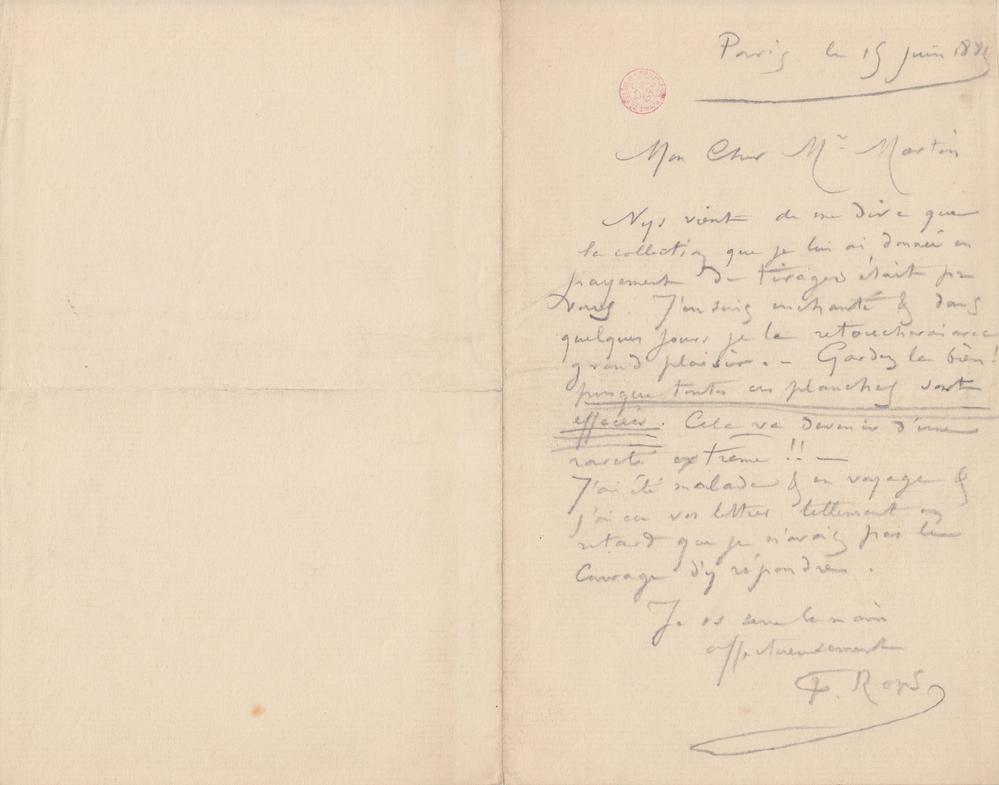 Paris le 15 juin 188
Mon Cher Mr Martin
Nys vient de me dire que
la collection que je lui ai donnée en
payement de tirages était pr
vous. J'en suis enchanté & dans
quelques jours je la retoucherai avec
grand plaisir. – Gardez la bien!
puisque toutes ces planches sont
effacées. Cela va devenir d'une
rareté extrême!! –
J'ai été malade & en voyage &
j'ai eu vos lettres tellement en
retard que je n'avais pas le
Courage d'y répondre.
Je vs serre la main
affectueusement
F. Rops